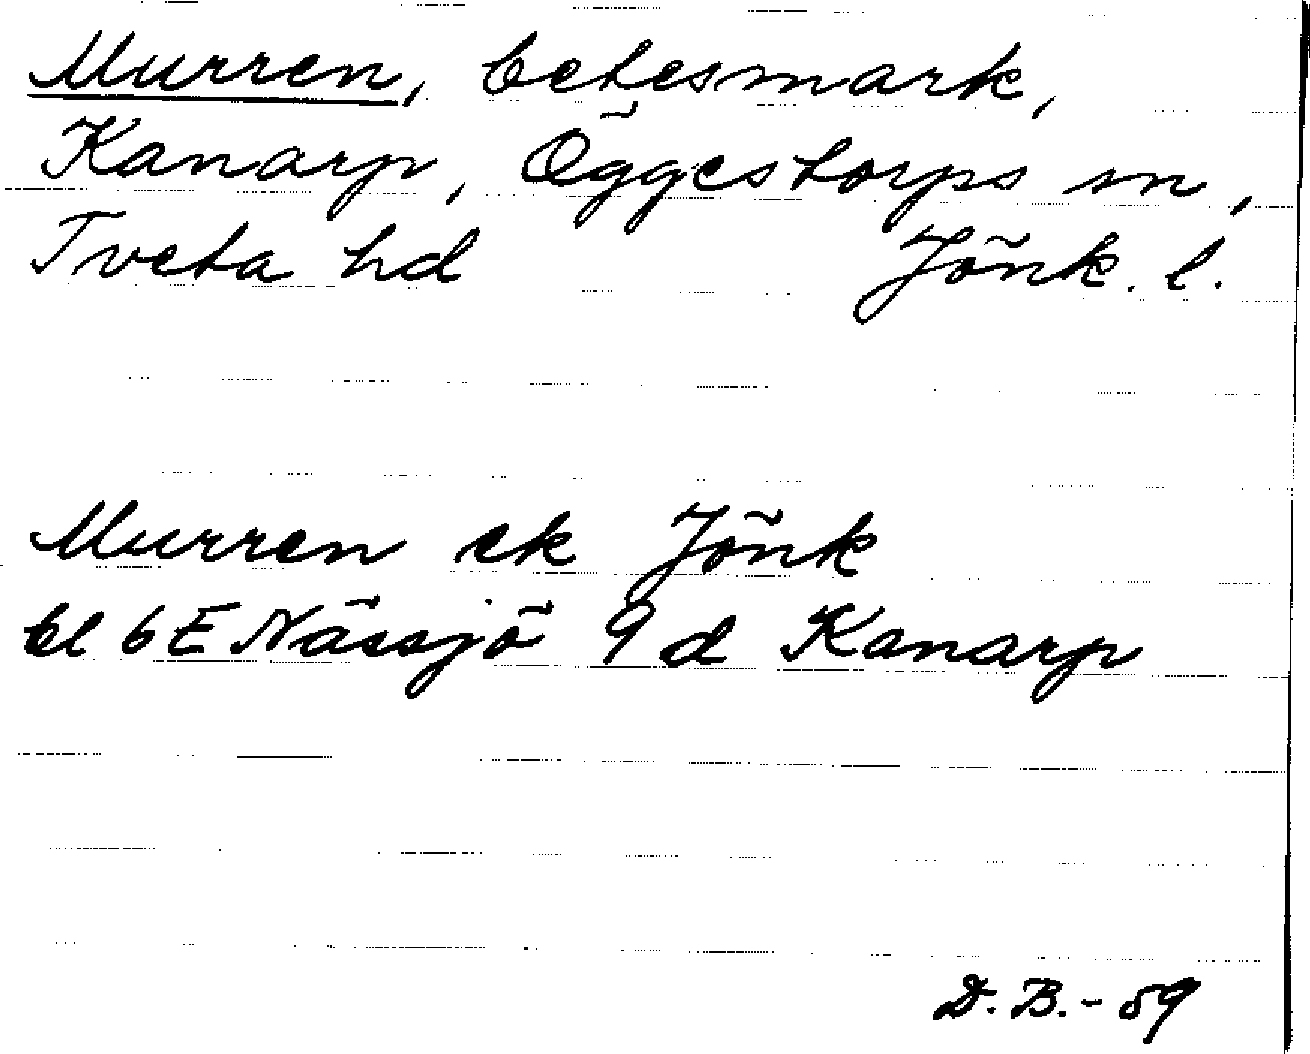 Murren, betesmark,
Kanarp, Öggestorps sn,
Tveta hd Jönk. l.
Murren ek Jönk
bl 6E Nässjö 9 d Kanarp
D. B. - 59